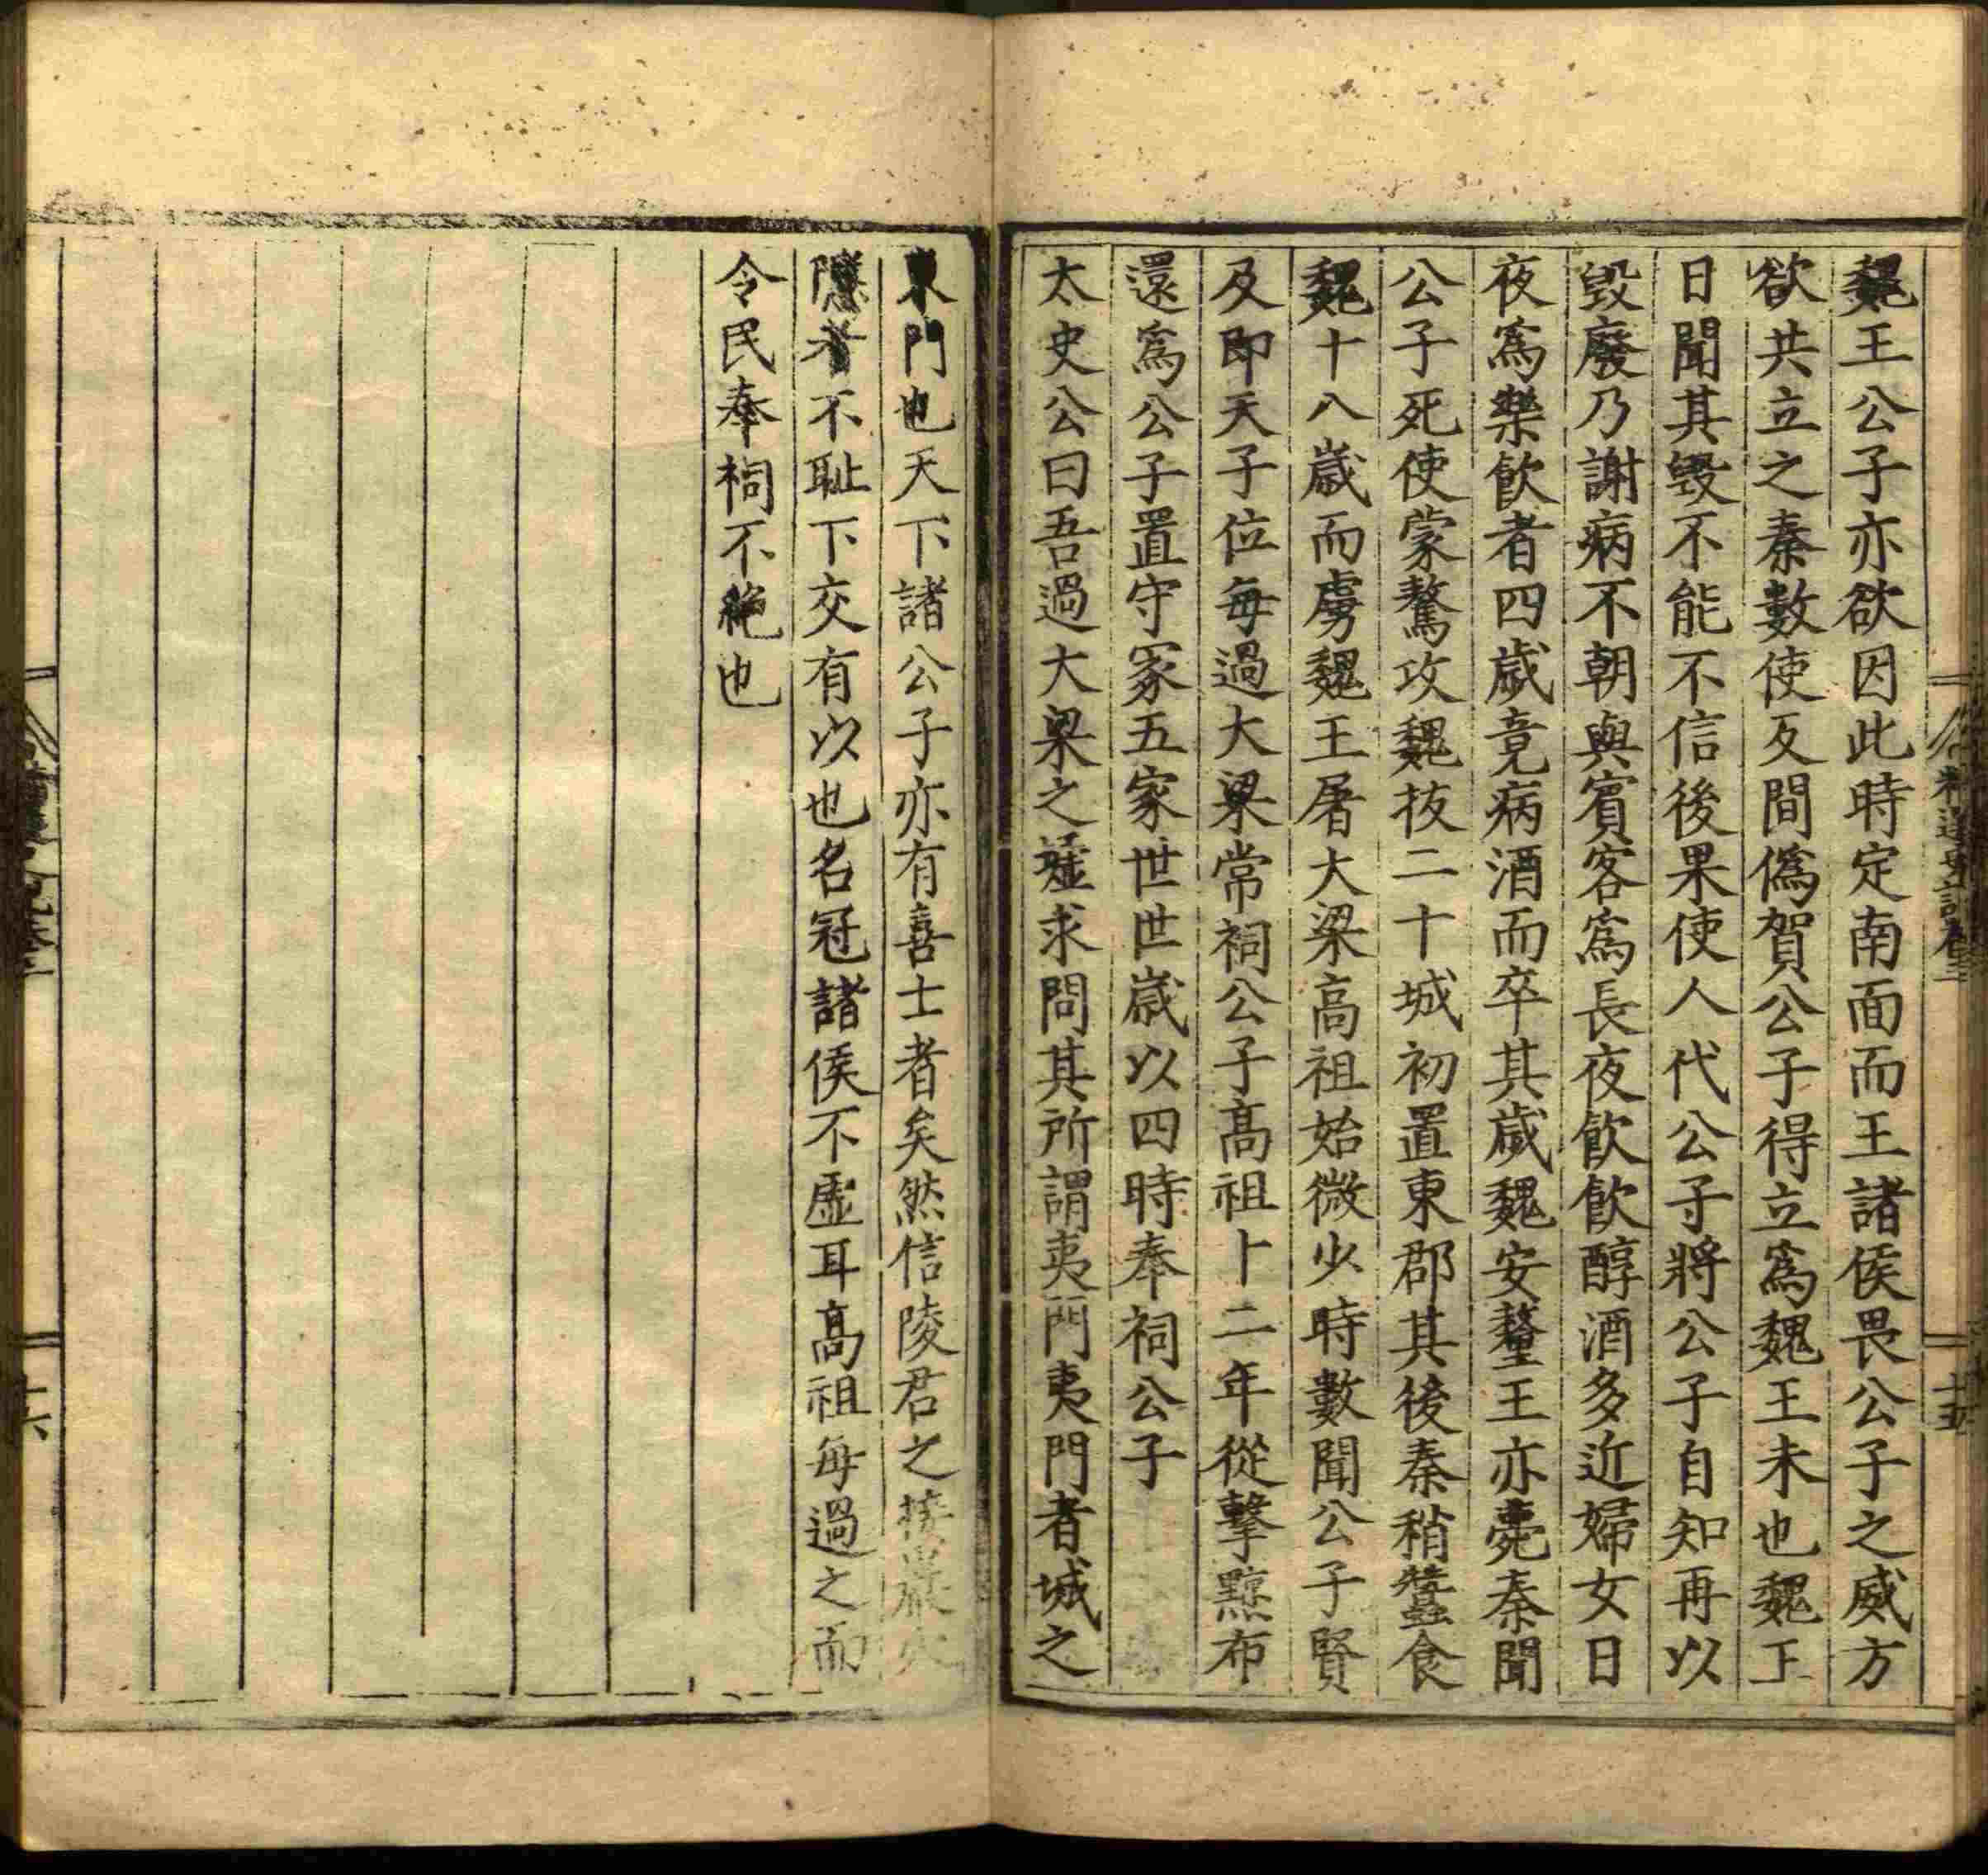 魏王公子亦欲因此時定南面而王諸侯畏公子之威方
欲共立之秦數使反間僞賀公子得立爲魏王未也魏王
日聞其毀不能不信後果使人代公子將公子自知再以
毀廢乃謝病不朝與賓客爲長夜飮飮醇酒多近婦女日
夜爲樂飮者四歲竟病酒而卒其歲魏安釐王亦薨秦聞
公子死使蒙驁攻魏拔二十城初置東郡其後秦稍蠶食
魏十八歲而虜魏王屠大梁高祖始微少時數聞公子賢
及即天子位每過大梁常祠公子高祖十二年從擊黥布
還爲公子置守冢五家世世歲以四時奉祠公子
太史公曰吾過大梁之墟求問其所謂夷門夷門者城之
東門也天下諸公子亦有喜士者矣然信陵君之接巖穴
隱者不耻下交有以也名冠諸侯不虛耳高祖每過之而
令民奉祠不絶也
史記卷三
十五
十六